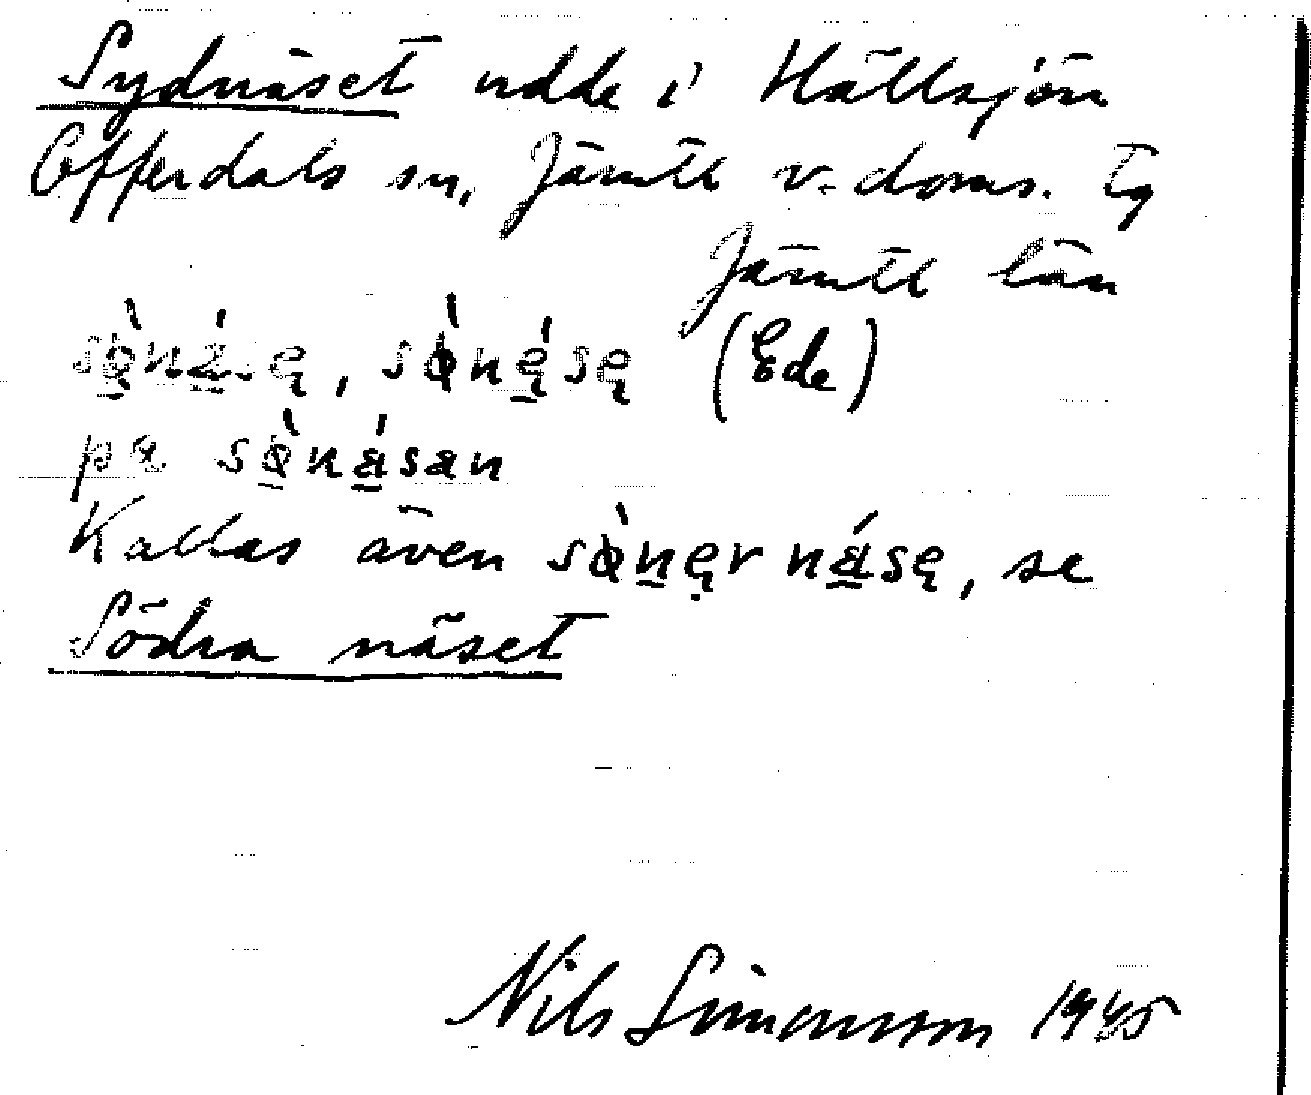 Sydnäset udde i Hällsjön
Offerdals sn, Jämtl v. doms. tg
Jämtl län
sö̀nä́sę, sö̀nę́sę (Ede)
pa sö̀nä́san
Kallas även sö̀nęr nä́sę, se
Södra näset
Nils Simonsson 1945